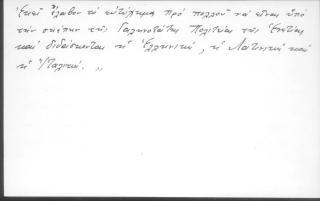 ἐκεῖ ἔλαβον τὸ εὐτύχημα πρὸ πολλοῦ νὰ εἶναι ὑπὸ
τὴν σκέπην τῆς Γαληνοτάτης Πολιτείας τῆς Ἑνετίας
καὶ διδάσκεται ἡ Ἑλληνική, ἡ Λατινικὴ καὶ
ἡ Ἰταλική. „